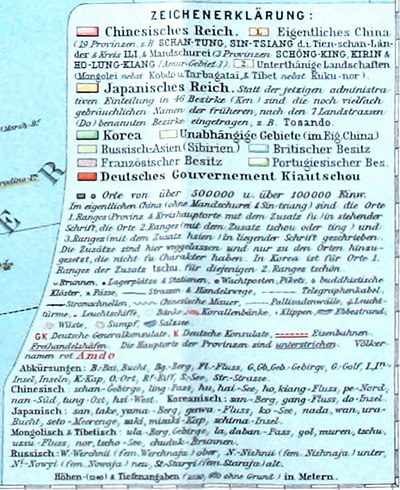 ZEICHENERKLÄRUNG:
Chinesisches Reich. 1. Eigentliches China
(19 Provinzen, z.B. SCHAN-TUNG, SIN-TSIANG d.i. Tien-schan-Län-
der & Kreis ILI & Mandschurei (3 Provinzen SCHÖNG-KING, KIRIN &
HO-LUNG-KIANG (Amur-Gebiet). 2. Unterthänige Landschaften
(Mongolei nebst Kobdo u. Tarbagatai, & Tibet nebst Kuku-nor).
Japanisches Reich. Statt der jetzigen administra-
tiven Einteilung in 46 Bezirke (Ken) sind die noch vielfach
gebräuchlichen Namen der früheren, nach den 7 Landstrassen
(Do) benannten Bezirke eingetragen, z.B. Tosando.
Korea Unabhängige Gebiete (im Eig. China)
Russisch-Asien (Sibirien) Britischer Besitz
Französischer Besitz Portugiesischer Bes.
Deutsches Gouvernement Kiautschou
Orte von über 500000 u. über 100000 Einw.
Im eigentlichen China (ohne Mandschurei & Sin-tsiang) sind die Orte
1. Ranges (Provinz & Kreishauptorte mit dem Zusatz fu) in stehender
Schrift, die Orte 2. Ranges (mit dem Zusatz tschou oder ting) und
3. Ranges (mit dem Zusatz hsien) in liegender Schrift geschrieben.
Die Zusätze sind hier weggelassen und nur zu den Orten hinzu-
gesetzt, die nicht fu Charakter haben. In Korea ist für Orte 1.
Ranges der Zusatz tschu, für diejenigen 2. Ranges tschön
Brunnen, Lagerplätze & Stationen, Wachtposten, Pikets, buddhistische
Klöster, Pässe, Strassen & Handelswege, Telegraphenkabel,
Stromschnellen, Chinesische Mauer, Pallisadenwälle, Leucht-
türme, Leuchtschiffe, Bänke, Korallenbänke, Klippen, Ebbestrand,
Wüste, Sumpf, Salzstte
GK Deutsche Generalkonsulate, K Deutsche Konsulate, Eisenbahnen.
Freihandelshäfen. Die Hauptorte der Provinzen sind unterstrichen. Völker-
namen rot Amdo
Abkürzungen: B.-Bai, Bucht, Bg.-Berg, Fl.-Fluss, G, Gb, Geb.-Gebirge, G.-Golf, I, In-
Insel, Inseln, K.-Kap, O.-Ort, R-Riff, S.-See, Str.-Strasse.
Chinesisch: schan-Gebirge, ling-Pass, hu, hai-See, ho, kiang-Fluss, pe-Nord,
nan-Süd, tung-Ost, hsi-West. Koreanisch: san-Berg, gang-Fluss, do-Insel.
Japanisch: san, take, yama-Berg, gawa-Fluss, ko-See, nada, wan, ura-
Bucht, seto-Meerenge, saki, misaki-Kap, schima-Insel.
Mongolisch & Tibetisch: ula-Berg, Gebirge, la, daban-Pass, gol, muren, tschu,
ussu-Fluss, nor, tscho-See, chuduk-Brunnen.
Russisch: W.-Werchnii (fem. Werchnaja) ober, N.-Nishnii (fem. Nishnaja) unter,
Nº-Nowyi (fem. Nowaja) neu, St.-Staryi (fem. Staraja) alt.
Höhen & Tiefenangaben in Metern.